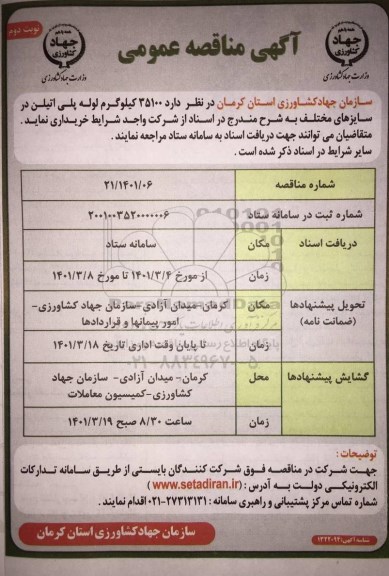 نوبت دوم
جهاد کشاورزی
وزارت جهاد کشاورزی
آگهی مناقصه عمومی
جهاد کشاورزی
وزارت جهاد کشاورزی
سازمان جهادکشاورزی استان کرمان در نظر دارد ۳۵۱۰۰ کیلوگرم لوله پلی اتیلن در
سایزهای مختلف به شرح مندرج در اسناد از شرکت واجد شرایط خریداری نماید .
متقاضیان می توانند جهت دریافت اسناد به سامانه ستاد مراجعه نمایند .
سایر شرایط در اسناد ذکر شده است .
شماره مناقصه ۲۱/۱۴۰۱/۰۶
شماره ثبت در سامانه ستاد ۲۰۰۱۰۰۳۵۲۰۰۰۰۰۰۶
دریافت اسناد مکان سامانه ستاد
زمان از مورخ ۱۴۰۱/۳/۴ تا مورخ ۱۴۰۱/۳/۸
تحویل پیشنهادها (ضمانت نامه) مکان کرمان- میدان آزادی -سازمان جهاد کشاورزی-
امور پیمانها و قراردادها
زمان تا پایان وقت اداری تاریخ ۱۴۰۱/۳/۱۸
گشایش پیشنهادها محل کرمان- میدان آزادی- سازمان جهاد
کشاورزی-کمیسیون معاملات
زمان ساعت ۸/۳۰ صبح ۱۴۰۱/۳/۱۹
۰۲۱-۸۸۳۴۹۶۷۰-۵
توضیحات :
جهت شرکت در مناقصه فوق شرکت کنندگان بایستی از طریق سامانه تدارکات
الکترونیکی دولت به آدرس : (www.setadiran.ir)
شماره تماس مرکز پشتیبانی و راهبری سامانه : ۲۷۳۱۳۱۳۱-۰۲۱ اقدام نمایند .
سازمان جهادکشاورزی استان کرمان